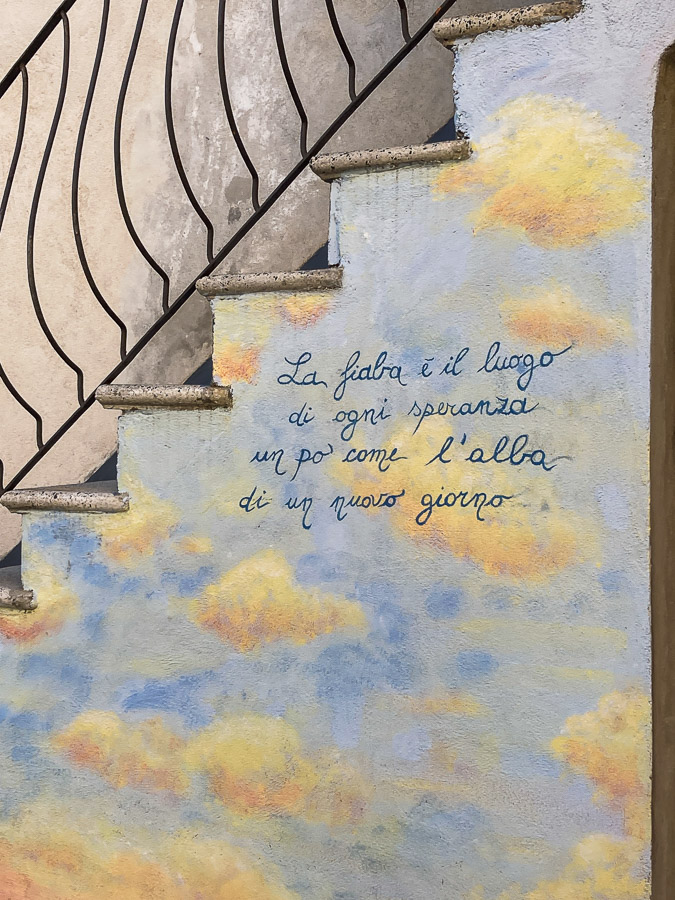 La fiaba è il luogo
di ogni speranza
un po' come l'alba
di un nuovo giorno